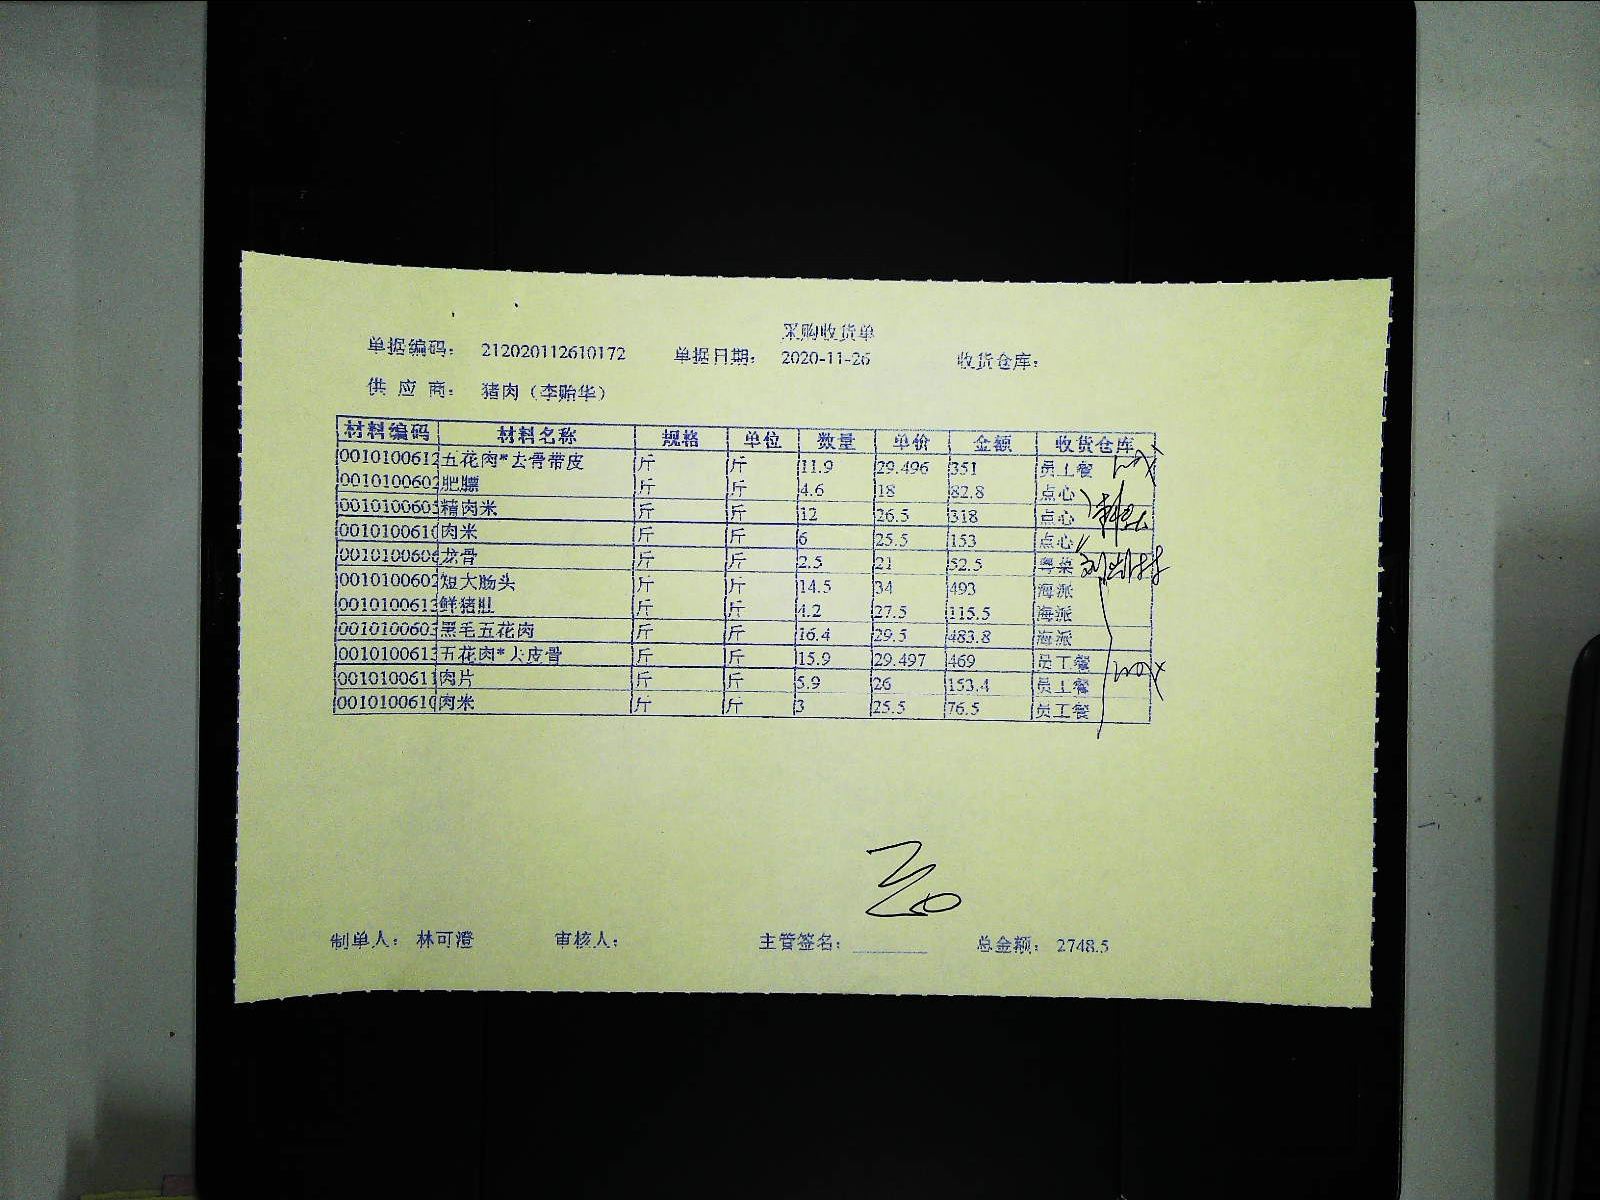 采购收货单
单据编码： 212020112610172 单据日期： 2020-11-26 收货仓库：
供 应 商： 猪肉（李贻华）
材料编码 材料名称 规格 单位 数量 单价 金额 收货仓库
0010100612 五花肉*去骨带皮 斤 斤 11.9 29.496 351 员工餐
0010100602 肥膘 斤 斤 4.6 18 82.8 点心
001010060 精肉米 斤 斤 12 26.5 318 点心
001010061 肉米 斤 斤 6 25.5 153 点心
001010060 龙骨 斤 斤 2.5 21 52.5 粤菜
0010100602 短大肠头 斤 斤 14.5 34 493 海派
001010061 鲜猪肚 斤 斤 4.2 27.5 115.5 海派
001010060 黑毛五花肉 斤 斤 16.4 29.5 483.8 海派
001010061 五花肉*去皮骨 斤 斤 15.9 29.497 469 员工餐
0010100611 肉片 斤 斤 5.9 26 153.4 员工餐
001010061 肉米 斤 斤 3 25.5 76.5 员工餐
制单人： 林可澄 审核人： 主管签名： 总金额： 2748.5